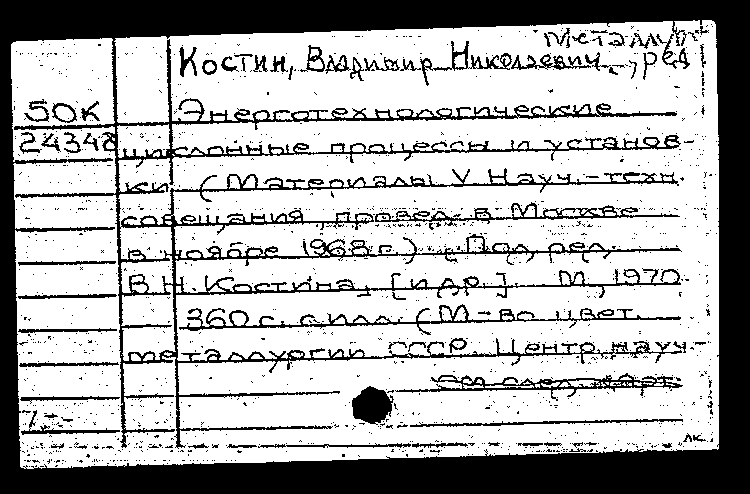 металлург
Костин, Владимир Николаевич, ред
50К Энерготехнологические
24348 циклонные процессы и установ-
ки (Материалы V Науч.-техн.
совещания, провед. в Москве
в ноябре 1968 г.). Под ред.
В.Н. Костина, [и др.]. М., 1970.
360 с. с илл. (М-во цвет.
металлургии СССР. Центр. науч-
См след. карт
1.--
лк